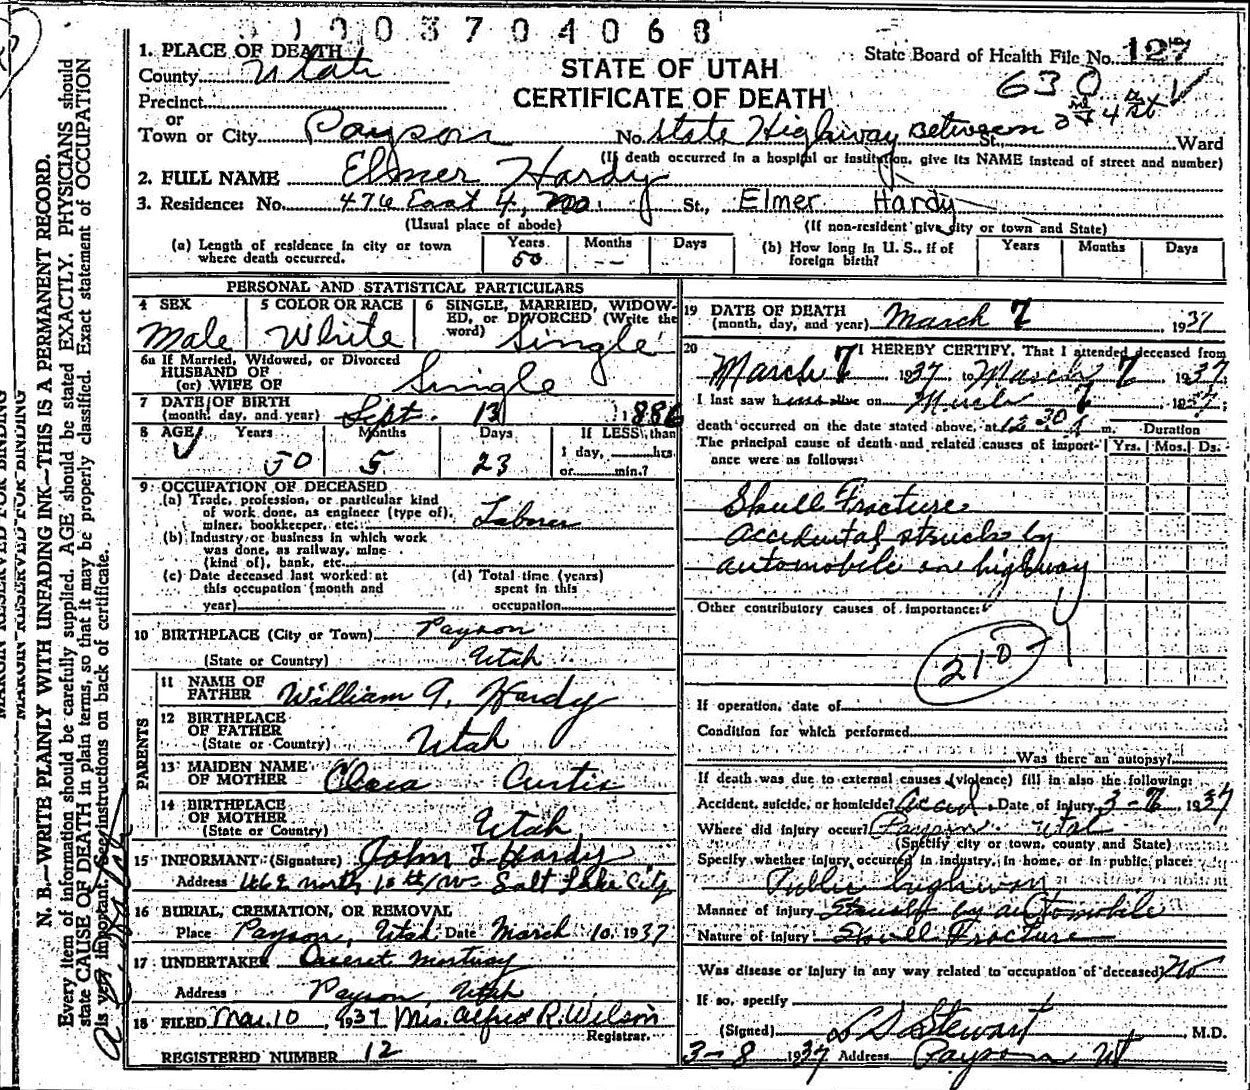 1003704068
1. PLACE OF DEATH
County Utah
STATE OF UTAH
CERTIFICATE OF DEATH
State Board of Health File No. 127
630
Precinct
or
Town or City Payson No. State Highway Between 3rd & 4th St. Ward
(If death occurred in a hospital or institution, give its NAME instead of street and number)
2. FULL NAME Elmer Hardy
3. Residence: No. 476 East 4, no. St., Elmer Hardy
(Usual place of abode) (If non-resident give city or town and State)
(a) Length of residence in city or town where death occurred. Years 50 Months -- Days
(b) How long in U. S., if of foreign birth? Years Months Days
PERSONAL AND STATISTICAL PARTICULARS
4 SEX Male
5 COLOR OR RACE White
6 SINGLE, MARRIED, WIDOWED, or DIVORCED (Write the word) Single
6a If Married, Widowed, or Divorced
HUSBAND OF
(or) WIFE OF Single
7 DATE OF BIRTH
(month, day, and year) Sept. 13 1886
8 AGE Years 50 Months 5 Days 23 If LESS than
1 day, hrs.
or min.?
9 OCCUPATION OF DECEASED
(a) Trade, profession, or particular kind
of work done, as engineer (type of),
miner, bookkeeper, etc. Laborer
(b) Industry or business in which work
was done, as railway, mine
(kind of), bank, etc.
(c) Date deceased last worked at
this occupation (month and
year)
(d) Total time (years)
spent in this
occupation
10 BIRTHPLACE (City or Town) Payson
(State or Country) Utah
PARENTS
11 NAME OF
FATHER William A. Hardy
12 BIRTHPLACE
OF FATHER
(State or Country) Utah
13 MAIDEN NAME
OF MOTHER Clara Curtis
14 BIRTHPLACE
OF MOTHER
(State or Country) Utah
15 INFORMANT (Signature) John T Hardy
Address 462 north 10th W. Salt Lake City
16 BURIAL, CREMATION, OR REMOVAL
Place Payson, Utah Date March 10, 1937
17 UNDERTAKER Deseret Mortuary
Address Payson, Utah
18 FILED Mar. 10, 1937 Mrs. Alfred R. Wilson
Registrar.
REGISTERED NUMBER 12
19 DATE OF DEATH
(month, day, and year) March 7, 1937
20 I HEREBY CERTIFY, That I attended deceased from
March 7 1937 to March 7, 1937
I last saw h alive on March 7, 1937;
death occurred on the date stated above, at 12:30 A m.
The principal cause of death and related causes of importance were as follows:
Duration
Yrs. Mos. Ds.
Skull Fracture
accidental struck by
automobile on highway
Other contributory causes of importance:
210
If operation, date of
Condition for which performed
Was there an autopsy?
If death was due to external causes (violence) fill in also the following:
Accident, suicide, or homicide? Accid. Date of injury 3-7, 1937
Where did injury occur? Payson Utah
(Specify city or town, county and State)
Specify whether injury occurred in industry, in home, or in public place:
Public highway
Manner of injury Struck by automobile
Nature of injury Skull Fracture
Was disease or injury in any way related to occupation of deceased? No
If so, specify
(Signed) L D Stewart, M.D.
3-8 1937 Address Payson Ut
MARGIN RESERVED FOR BINDING
MARGIN RESERVED FOR BINDING
N. B.—WRITE PLAINLY WITH UNFADING INK—THIS IS A PERMANENT RECORD.
Every item of information should be carefully supplied. AGE should be stated EXACTLY. PHYSICIANS should
state CAUSE OF DEATH in plain terms, so that it may be properly classified. Exact statement of OCCUPATION
is very important. See instructions on back of certificate.